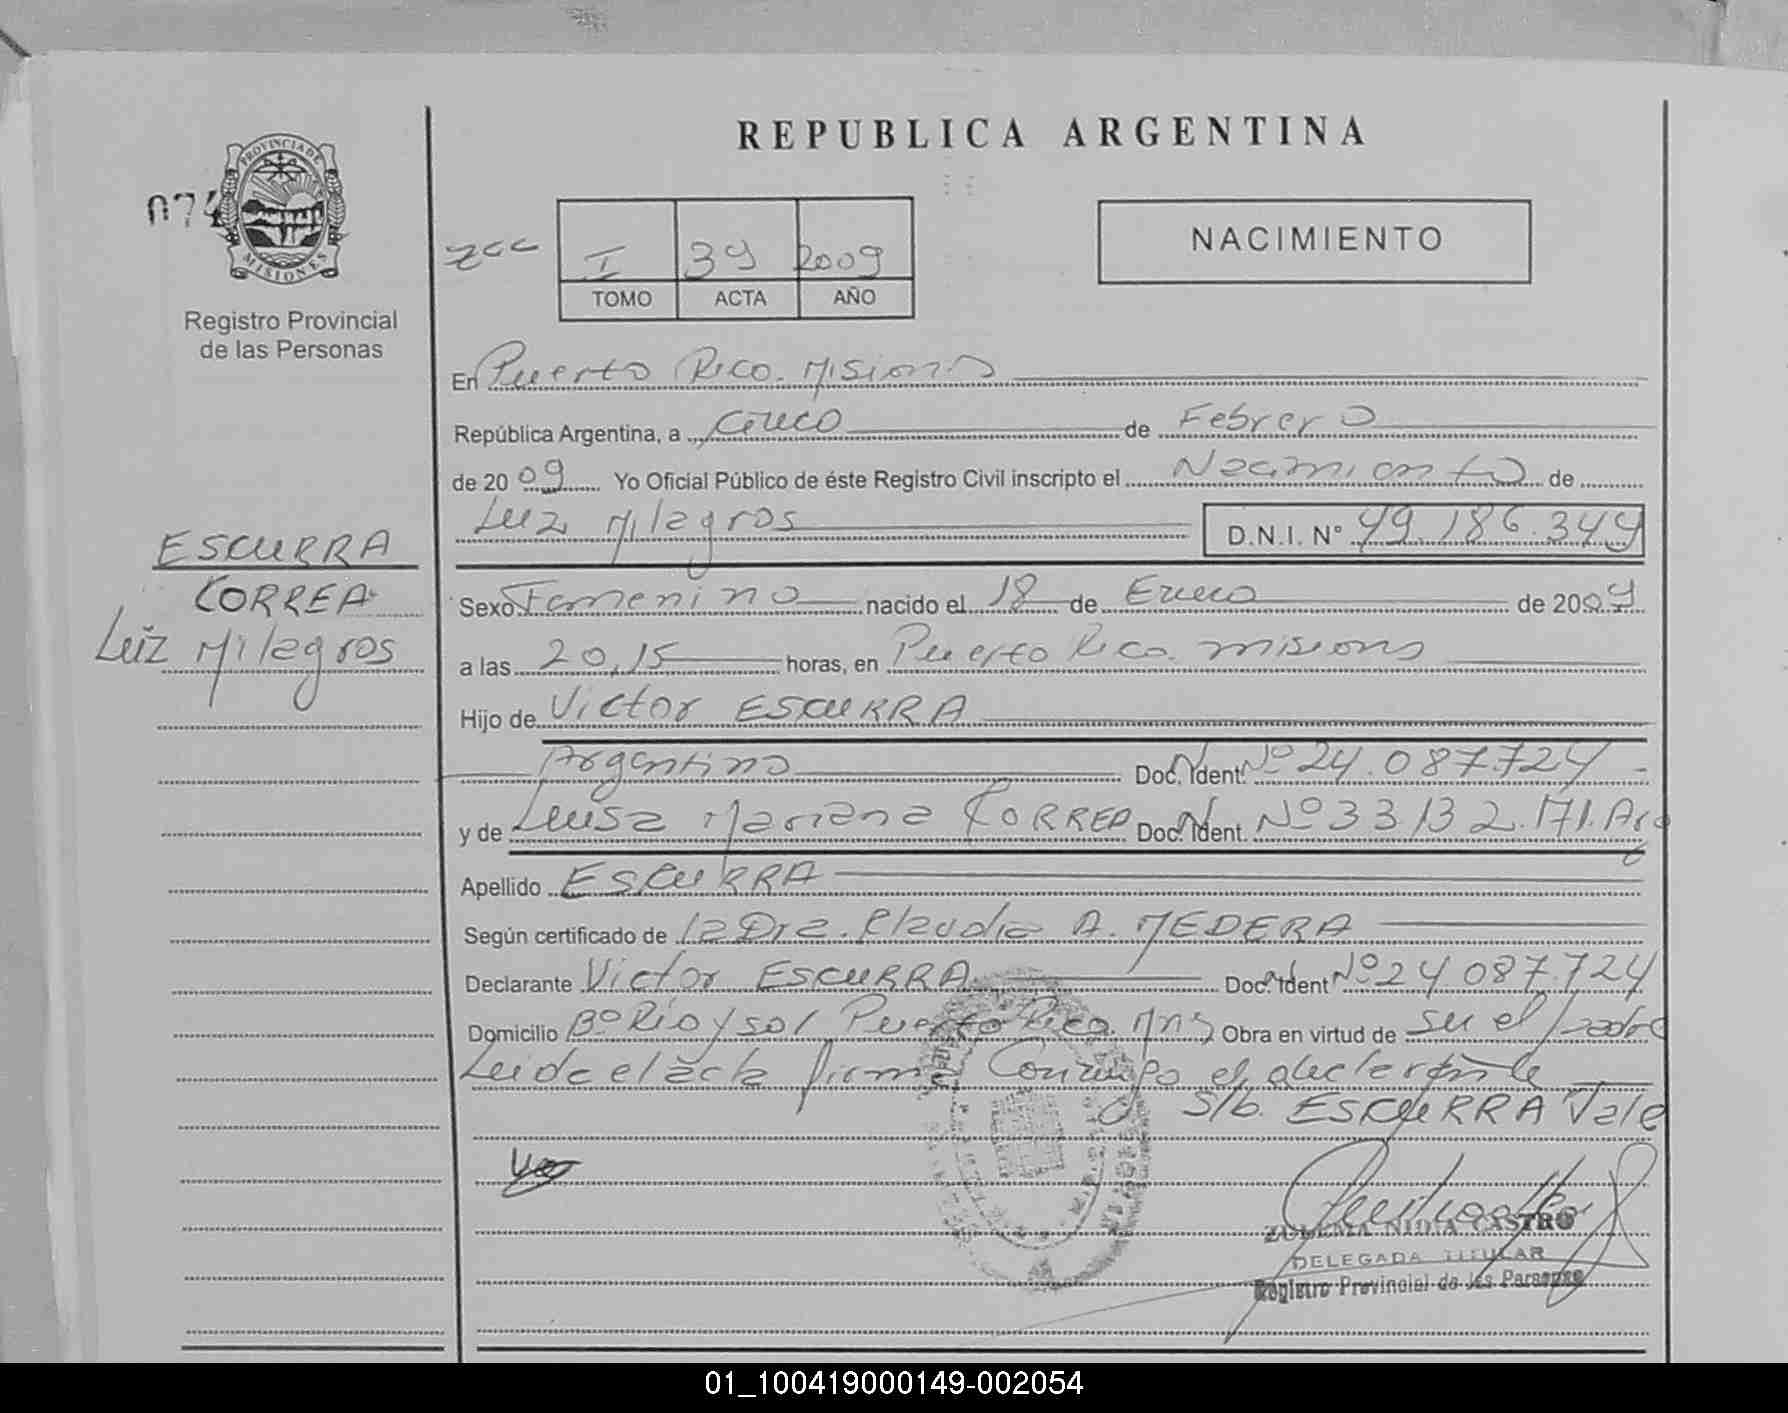 REPUBLICA ARGENTINA
PROVINCIA DE
MISIONES
074
Registro Provincial
de las Personas
NACIMIENTO
I 39 2009
TOMO ACTA AÑO
En Puerto Rico. Misiones
República Argentina, a Cinco de Febrero
de 2009 Yo Oficial Público de éste Registro Civil inscripto el Nacimiento de
Luz Milagros D.N.I. Nº 49.186.349
ESCURRA
CORREA
Luz Milagros
Sexo Femenino nacido el 18 de Enero de 2009
a las 20,15 horas, en Puerto Rico. misiones
Hijo de Victor ESCURRA
Argentino Doc. Ident. Nº 24.087.724
y de Luisa Mariana CORREA Doc. Ident. Nº 33.132.171. Arg
Apellido ESCURRA
Según certificado de la Dra. Claudia A. MEDERA
Declarante Victor ESCURRA Doc. Ident Nº 24 087.724
Domicilio Bº Rio y sol Puerto Rico. Mns Obra en virtud de ser el padre
Leida el acta firma Conmigo el declarante
S/b. ESCURRA Vale
ZULEMA NIDIA CASTRO
DELEGADA TITULAR
Registro Provincial de las Personas
01_100419000149-002054